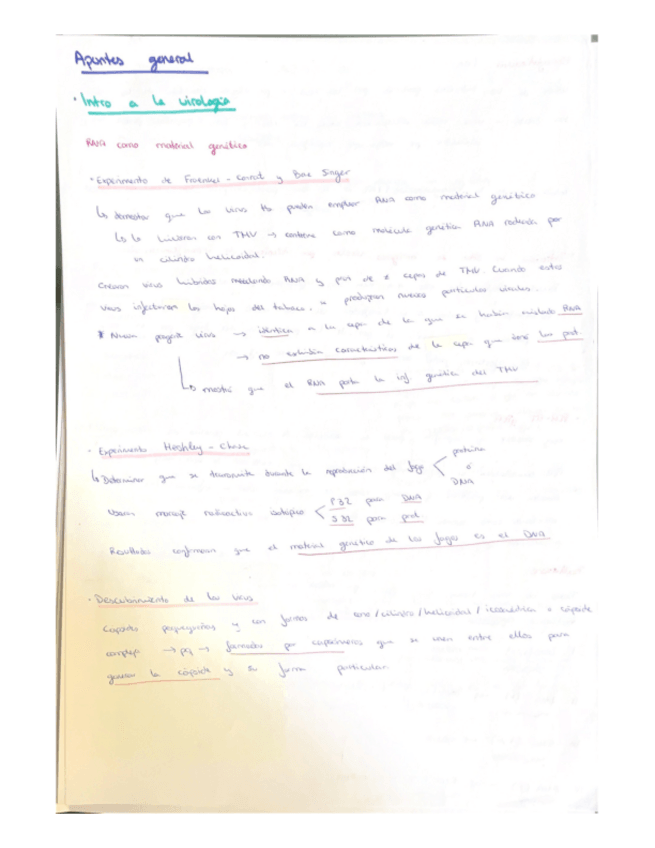 Apuntes general
· Intro a la virología
RNA como material genético
· Experimento de Fraenkel - Conrat y Bae Singer
↳ demostrar que los virus pueden emplear RNA como material genético
↳ lo hicieron con TMV → contiene como molécula genética RNA rodeada por
un cilindro helicoidal.
Crearon virus híbridos mezclando RNA y prot de 2 cepas de TMV. Cuando estos
virus infectaron las hojas del tabaco, produjeron nuevas partículas virales.
Nueva virus → idéntica a la cepa de la que se había aislado RNA
→ no exhibía características de la cepa que donó las prot
↳ mostró que el RNA porta la inf genética del TMV
· Experimento Hershley - Chase
↳ Determinar que se transmite durante la reproducción del fago < proteína
o
DNA
Usaron marcaje radioactivo isotópico < P32 para DNA
S32 para prot
Resultados confirmaron que el material genético de los fagos es el DNA
· Descubrimiento de los virus
y con formas de cono / cilindro / helicoidal / icosaédrica o cápside
complejo → pq → formados por capsómeros que se unen entre ellos para
generar la cápside y su forma particular.